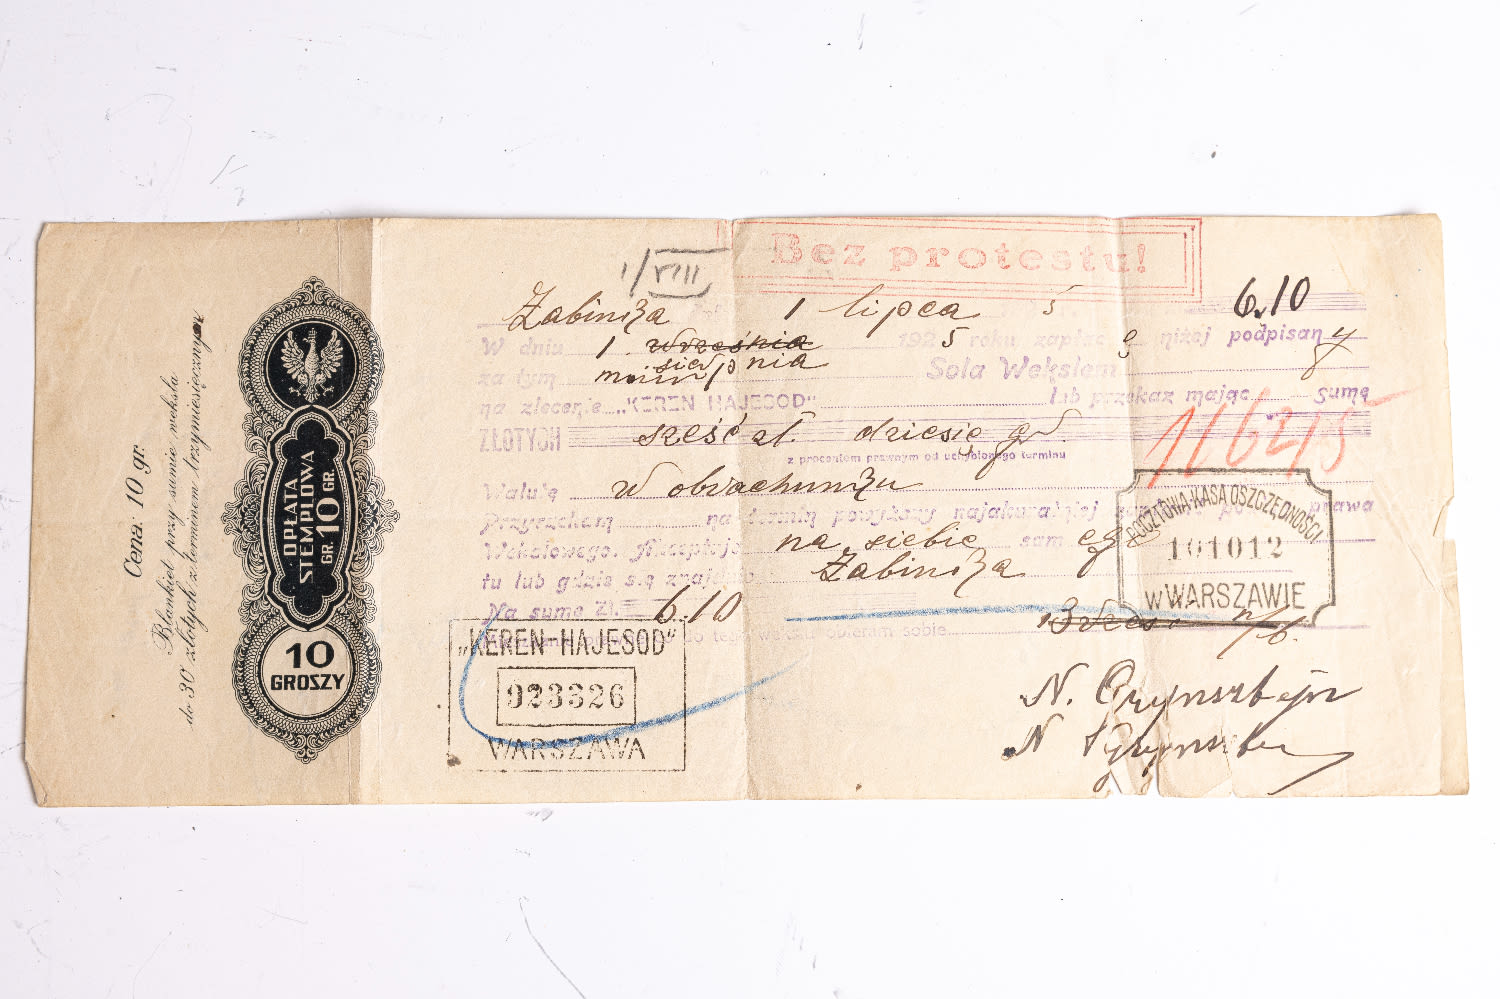 Cena 10 gr.
Blankiet przy sumie weksla
do 30 złotych z terminem trzymiesięcznym
OPŁATA
STEMPLOWA
GR. 10 GR.
10
GROSZY
1/VIII
Bez protestu!
Żabinka 1 lipca 5 6.10
W dniu 1 września 1925 roku zapłac niżej podpisany
sierpnia
za tym Sola Wekslem
na zlecenie „KEREN HAJESOD" lub przekaz mając sumę
ZŁOTYCH sześć zł. dziesię gr.
z procentem prawnym od uchybionego terminu
116215
Walutę w obrachunku
Przyrzekam na termin powyższy najakuratniej prawa
Wekslowego. Akceptuję na siebie sam
tu lub gdzie się znajdę Żabinka
Na sumę Zł. 6.10
do tego wekslu obieram sobie
Brześć n/B.
POCZTOWA KASA OSZCZĘDNOŚCI
101012
w WARSZAWIE
„KEREN-HAJESOD"
923326
WARSZAWA
N.
N